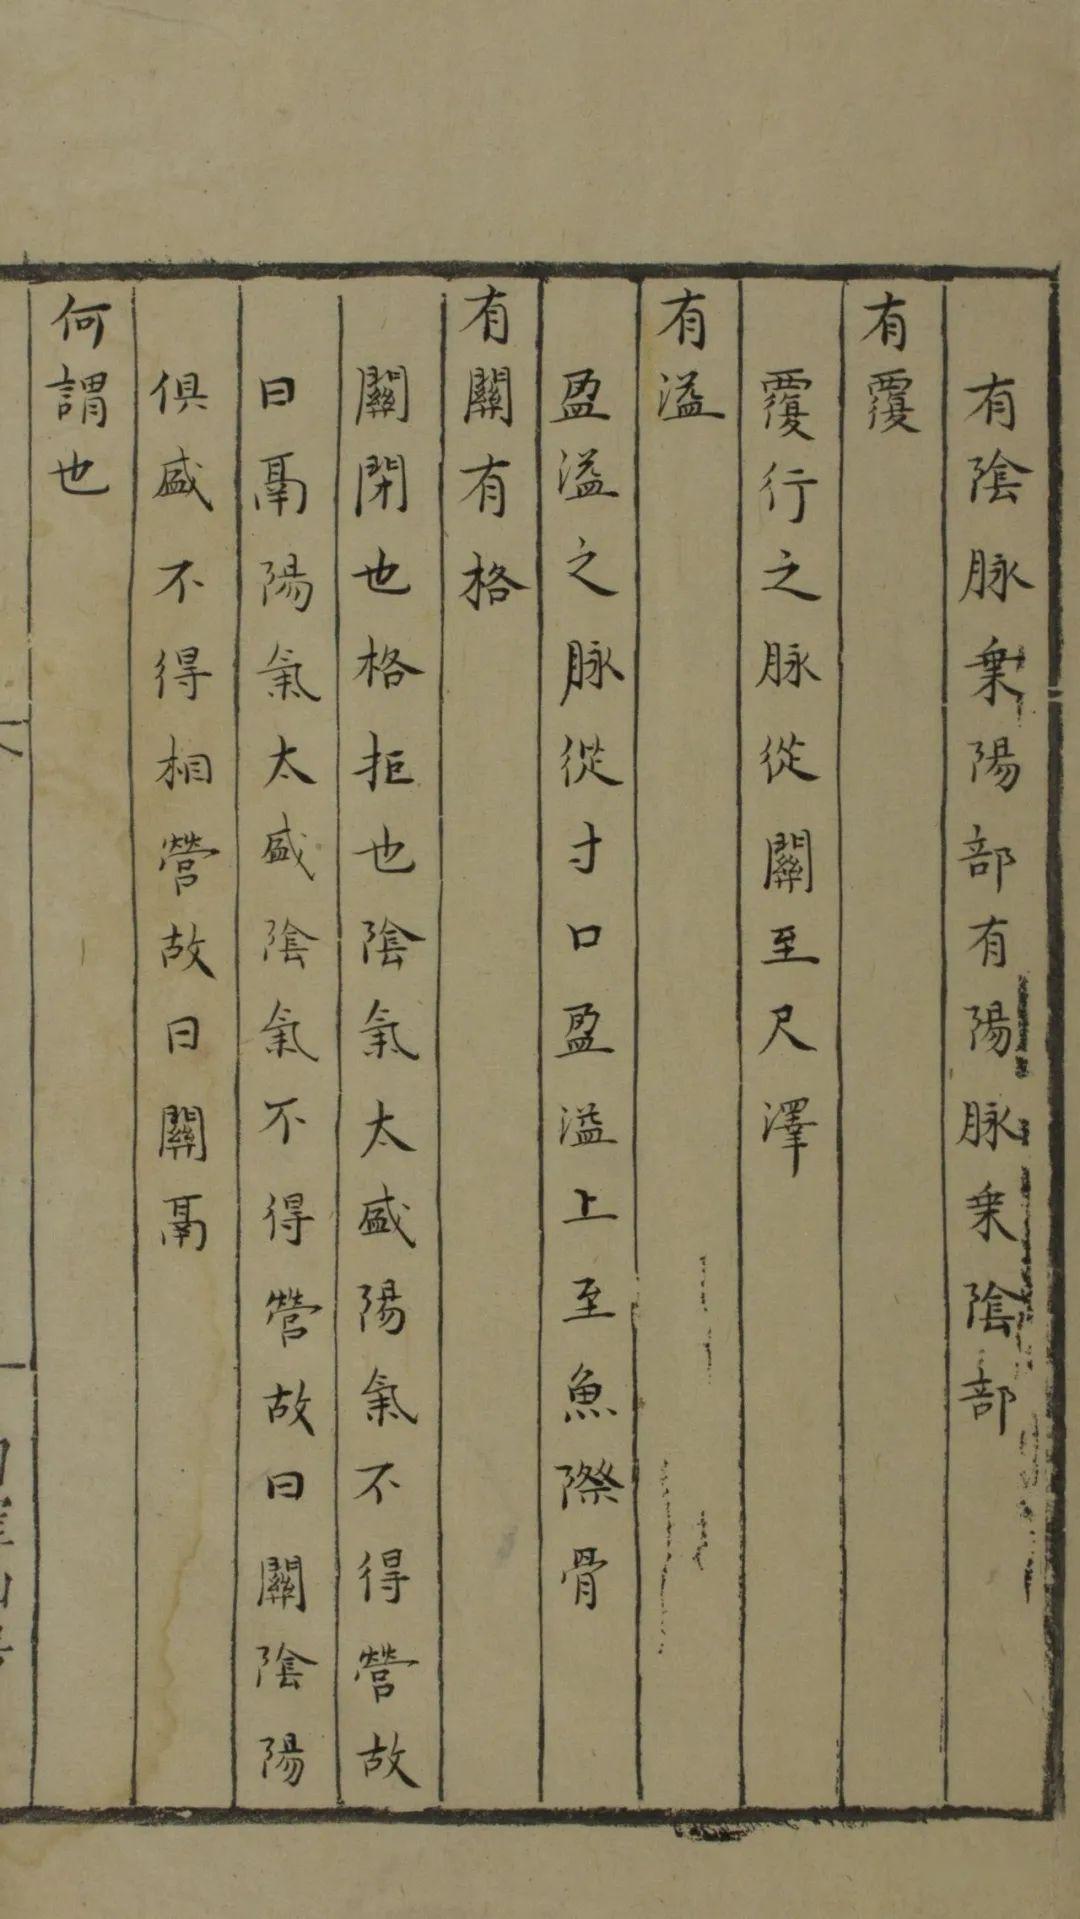 有陰脉乗陽部有陽脉乗陰部
有覆
覆行之脉從關至尺澤
有溢
盈溢之脉從寸口盈溢上至魚際骨
有關有格
關閉也格拒也陰氣太盛陽氣不得營故
曰鬲陽氣太盛陰氣不得營故曰關陰陽
俱盛不得相營故曰關鬲
何謂也